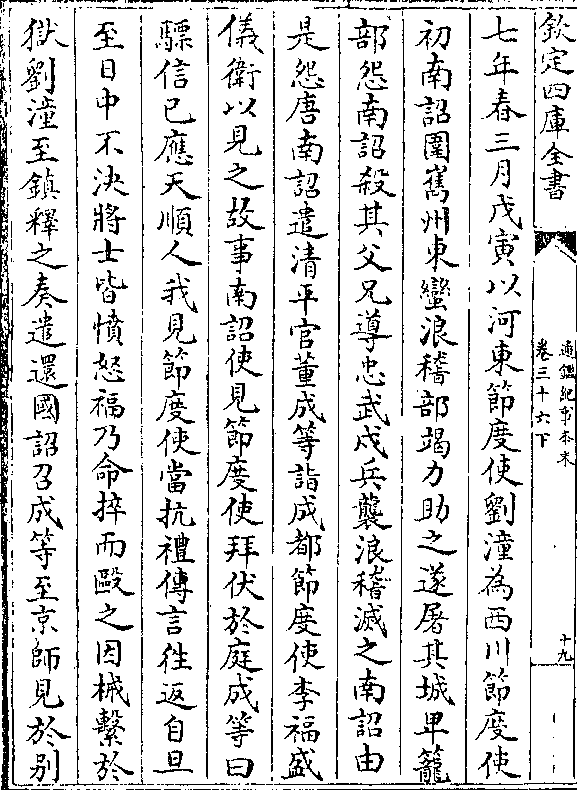 欽定四庫全書
通鑑紀事本末
卷三十六下
十九
七年春三月戊寅以河東節度使劉潼為西川節度使
初南詔圍嶲州東蠻浪稽部竭力助之遂屠其城卑籠
部怨南詔殺其父兄導忠武戍兵襲浪稽滅之南詔由
是怨唐南詔遣清平官董成等詣成都節度使李福盛
儀衛以見之故事南詔使見節度使拜伏於庭成等曰
驃信已應天順人我見節度使當抗禮傳言往返自旦
至日中不決將士皆憤怒福乃命捽而毆之因械繫於
獄劉潼至鎮釋之奏遣還國詔召成等至京師見於別